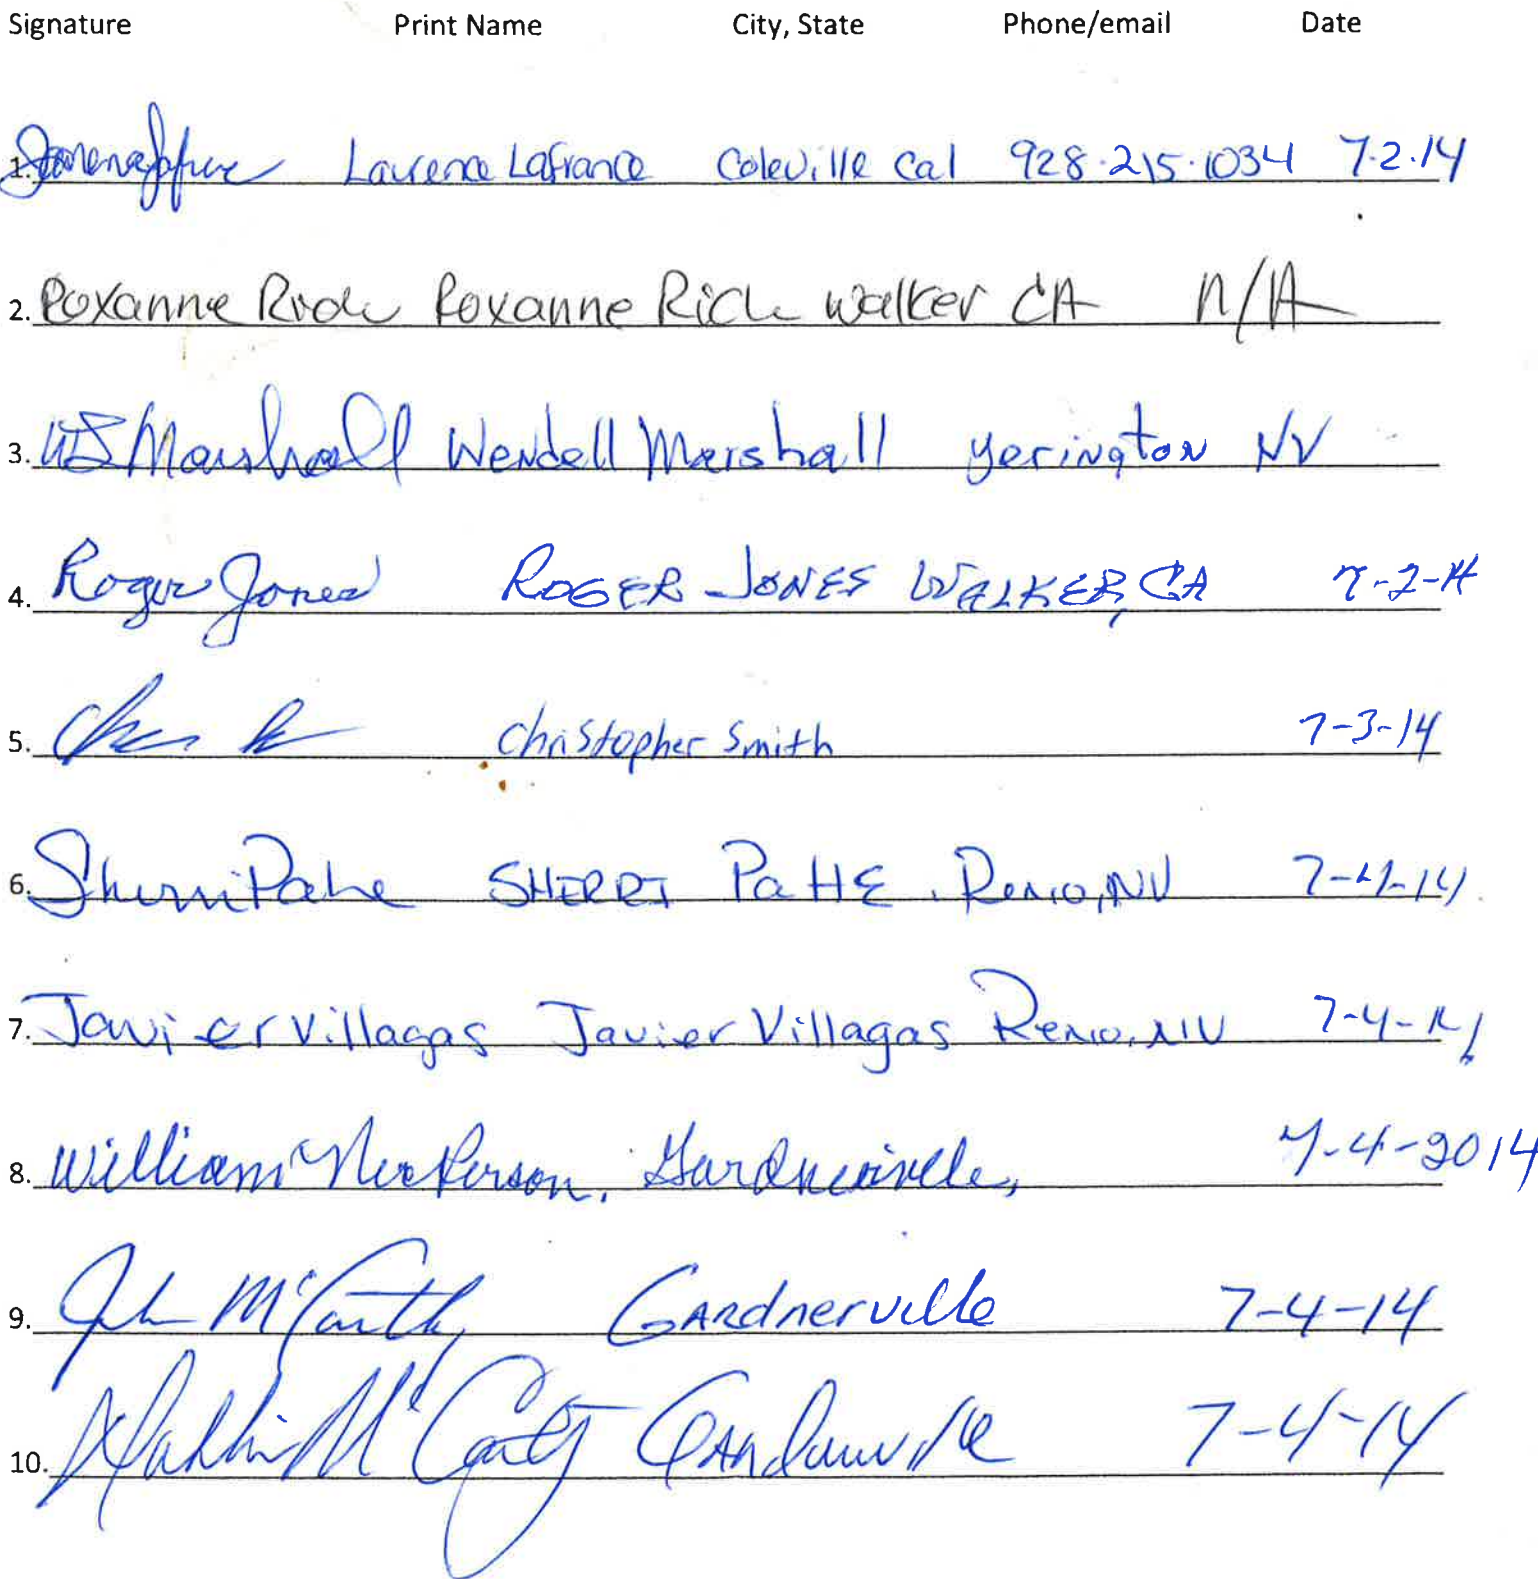 Signature Print Name City, State Phone/email Date
1. Laurence Lafrance Coleville Cal 928.215.1034 7.2.14
2. Roxanne Rich Roxanne Rich Walker CA n/A
3. WJ Marshall Wendell Marshall yerington NV
4. Roger Jones ROGER JONES WALKER, CA 7-2-14
5. Christopher Smith 7-3-14
6. Sherri Pahe SHERRI PaHE Reno, NV 7-4-14
7. Javier Villagas Javier Villagas Reno, NV 7-4-14
8. William Nickerson, Gardnerville, 7-4-2014
9. John McCarthy GARdnerville 7-4-14
10. McCarty GARdnerville 7-4-14